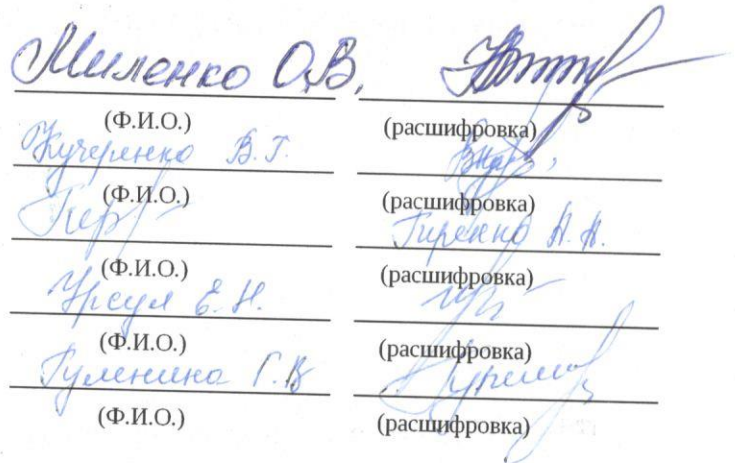 Миленко О.В.
(Ф.И.О.) (расшифровка)
Кучеренко В.Г.
(Ф.И.О.) (расшифровка)
Гиренко А.А.
(Ф.И.О.) (расшифровка)
Урсул Е.Н.
(Ф.И.О.) (расшифровка)
Гуленина Г.В
(Ф.И.О.) (расшифровка)